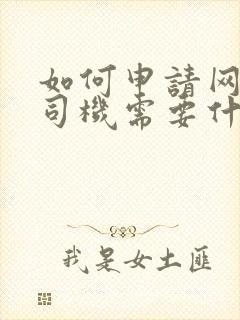 如何申請网
司機需要什
我是女土匪